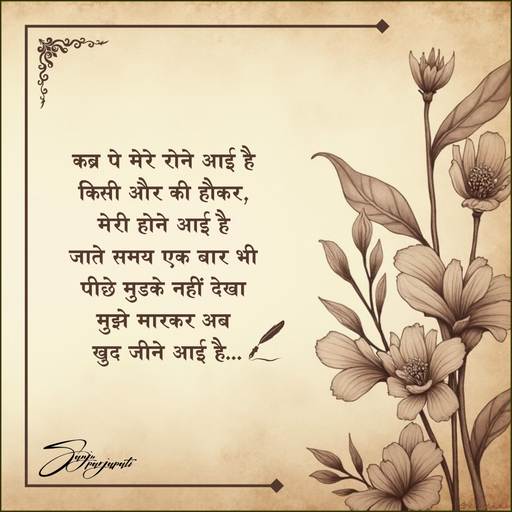 कब्र पे मेरे रोने आई है
किसी और की हौकर,
मेरी होने आई है
जाते समय एक बार भी
पीछे मुडके नहीं देखा
मुझे मारकर अब
खुद जीने आई है...